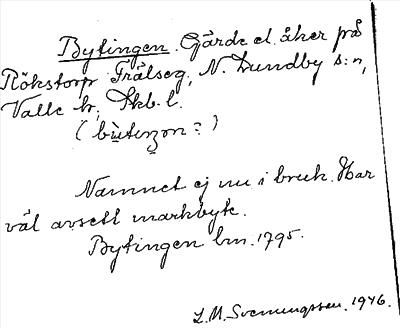 Bytingen. Gärde el. åker på
Rökstorp Frälseg, N. Lundby s:n,
Valle hr, Skb. l.
Namnet ej nu i bruk. Har
väl avsett markbyte.
Bytingen lm. 1795.
L.M. Svenungsson. 1946.